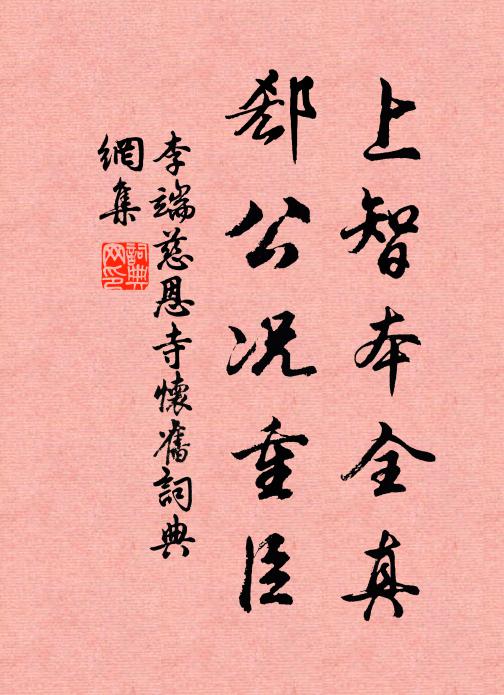 上智本全真
郄公况重臣
李端慈恩寺懷舊詞典
網集
詞典
网印